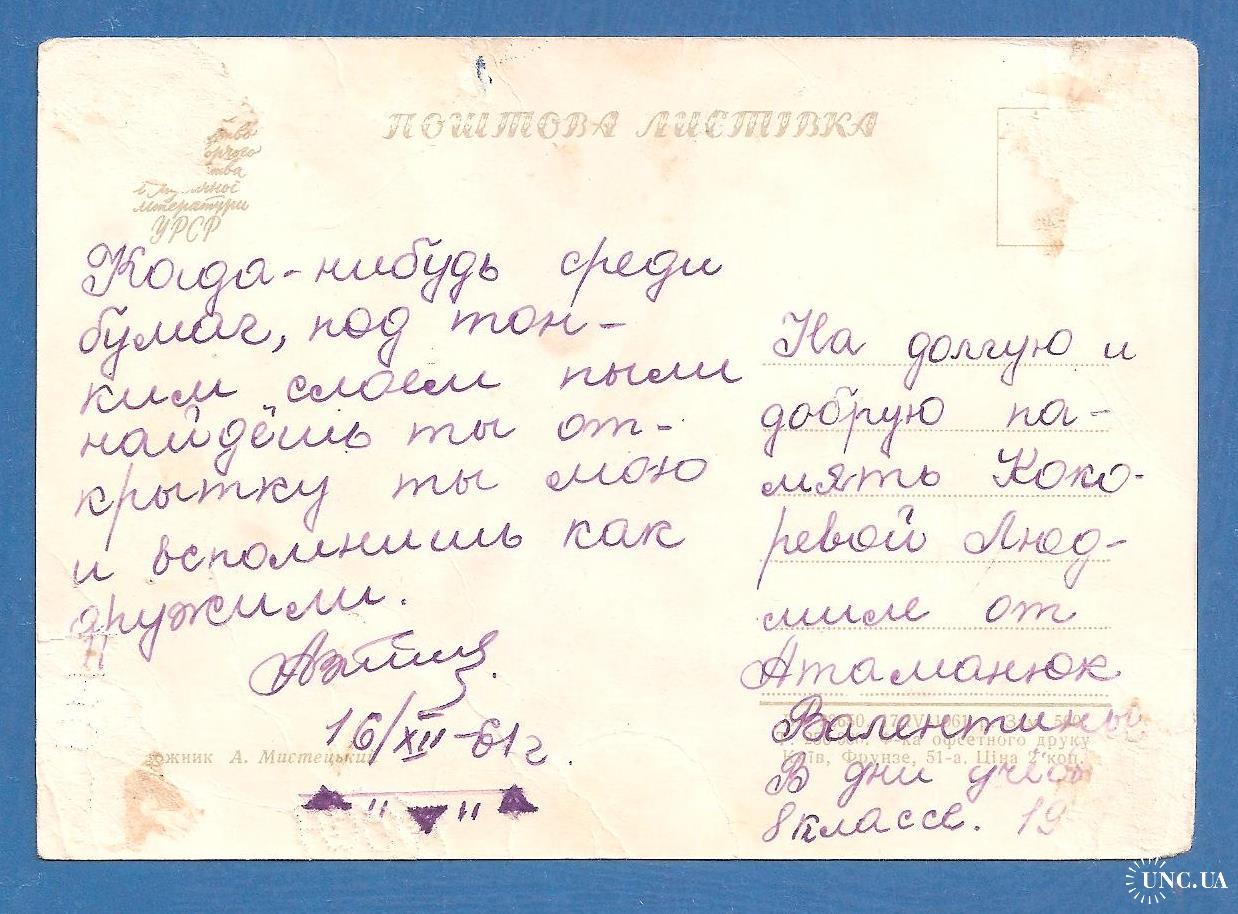 ПОШТОВА ЛИСТІВКА
літератури
УРСР
Когда-нибудь среди
бумаг, под тон-
ким слоем пыли
найдёшь ты от-
крытку ты мою
и вспомнишь как
дружили.
16/XII-61г.
" "
На долгую и
добрую па-
мять Коко-
ревой Люд-
миле от
Атаманюк
Валентины
В дни учёбы
8 классе. 19
ожник А. Мистецький
офсетного друку
Київ, Фрунзе, 51-а. Ціна 2 коп.
UNC.UA